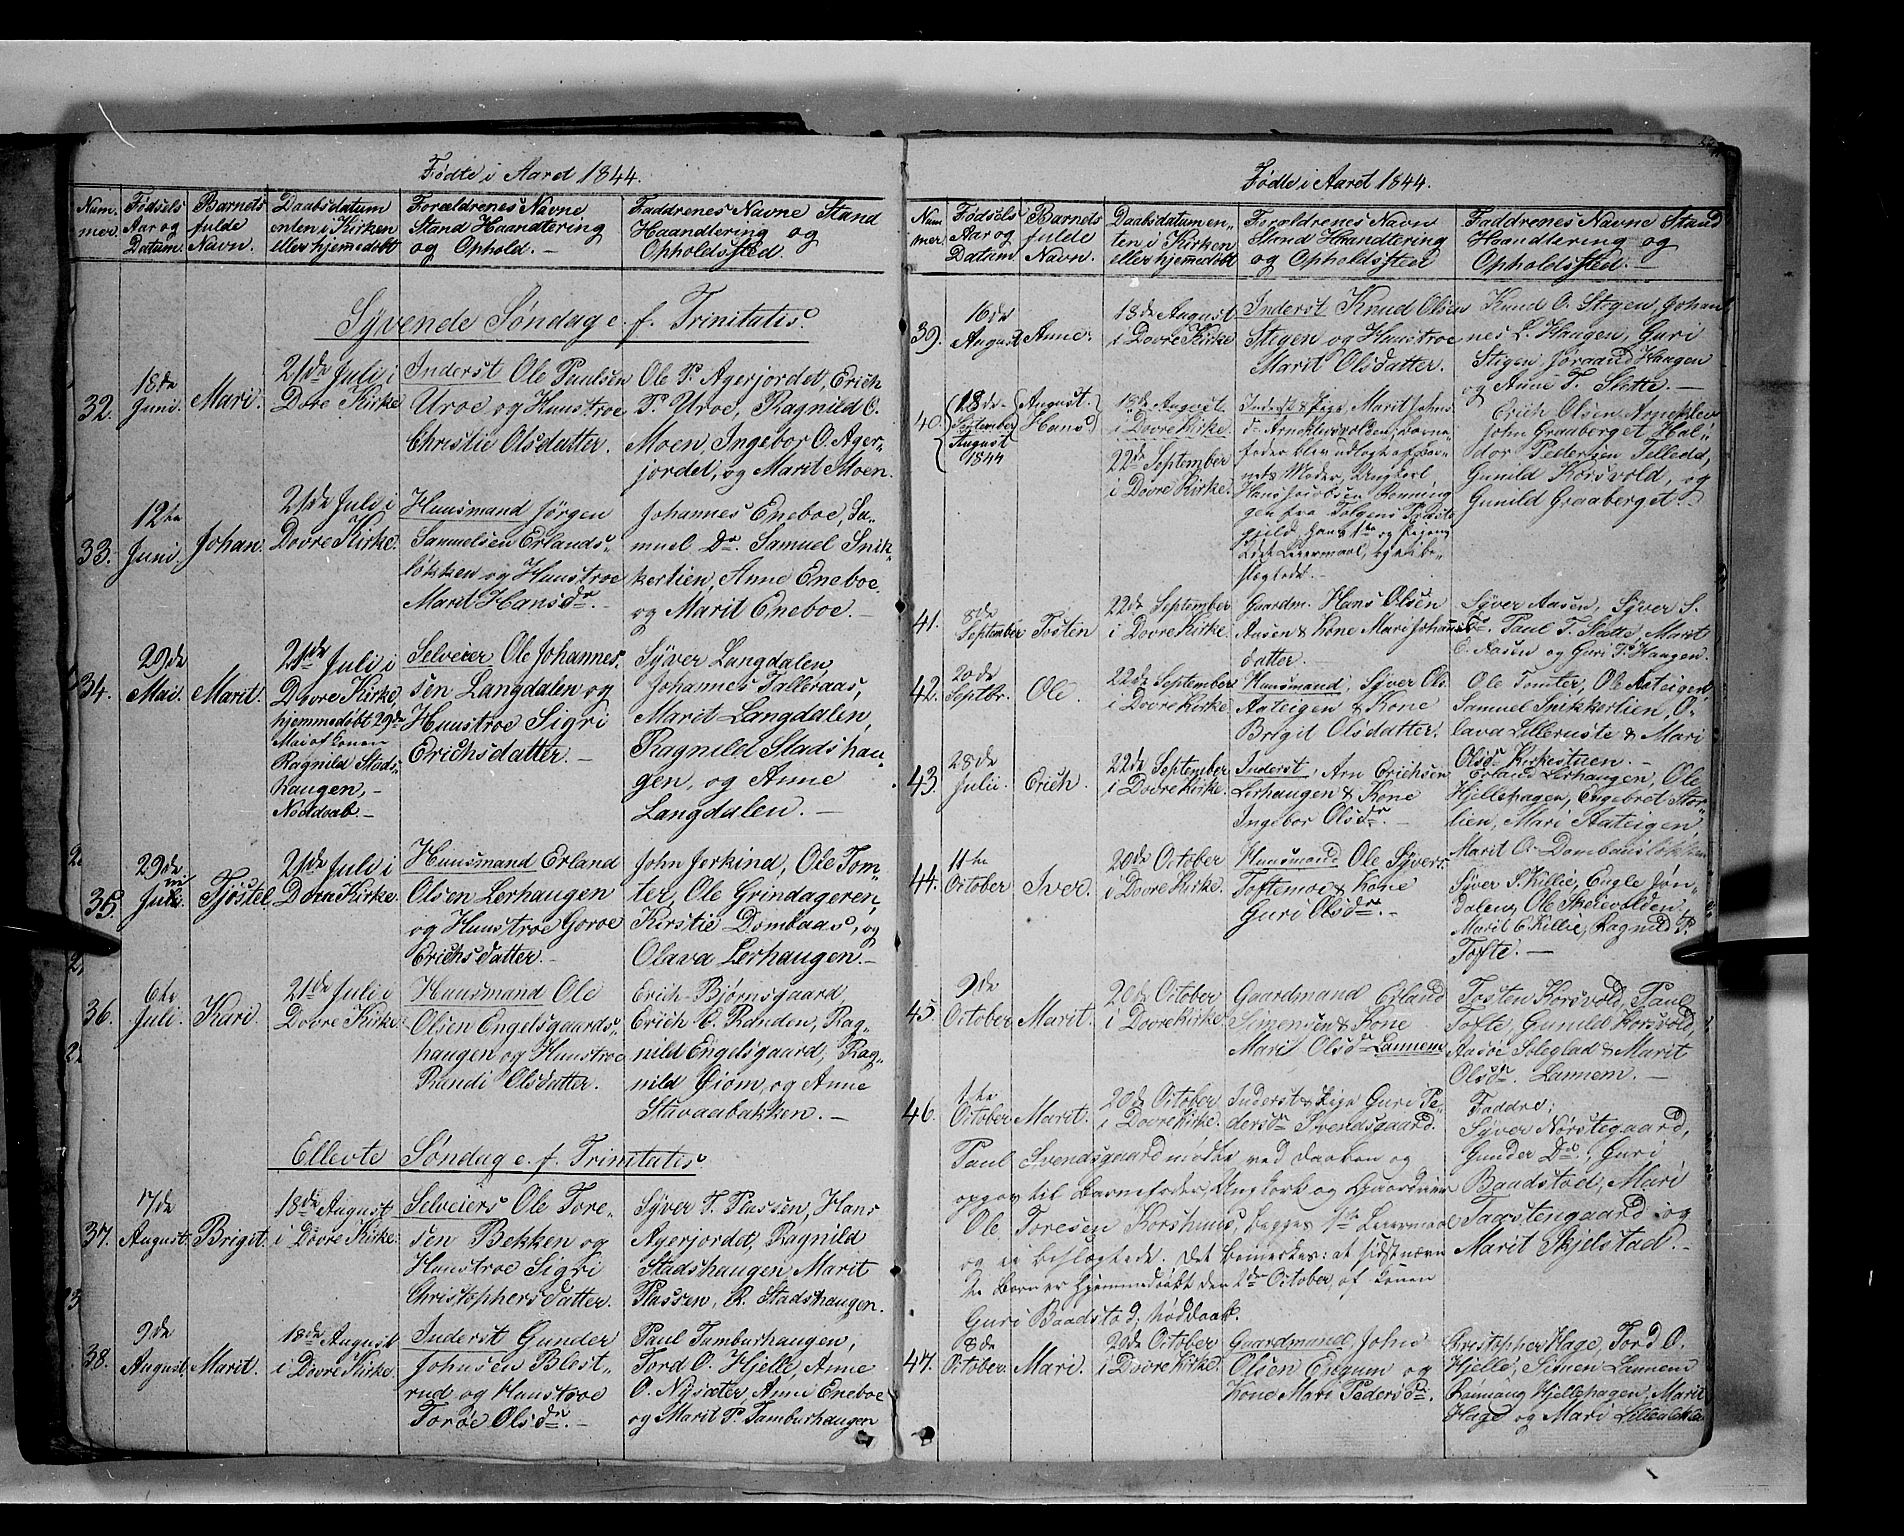 Fødte i Aaret 1844.
Num-
mer.
Fødsels
Aar og
Datum.
Barnets
fulde
Navn.
Daabsdatum
enten i Kirken
eller hjemmedøbt
Forældrenes Navne
Stand Haandtering
og Ophold. -
Faddrenes Navne Stand
Haandtering og
Opholdssted.
Syvende Søndag e. f. Trinitatis.
32.
18de
Juni.
Mari.
21de Juli i
Dovre Kirke
Inderst Ole Paulsen
Uroe og Huustroe
Christie Olsdatter.
Ole P. Agerjordet, Erich
P. Uroe, Ragnild O.
Moen, Ingebor O. Ager-
jordet, og Marit Moen.
33.
12te
Juni.
Johan.
21de Juli i
Dovre Kirke.
Huusmand Jørgen
Samuelsen Erlands-
løkken og Huustroe
Marit Hansdr. -
Johannes Eneboe, Sa-
muel Do. Samuel Snik-
kertien, Anne Eneboe
og Marit Eneboe. -
34.
29de
Mai.
Marit.
21de Juli i
Dovre Kirke,
hjemmedøbt 29de
Mai af konen
Ragnild Stads-
haugen, -
Nøddaab. -
Selveier Ole Johannes-
sen Langdalen og
Huustroe Sigri
Erichsdatter. -
Syver Langdalen,
Johannes Talleraas,
Marit Langdalen,
Ragnild Stadshau-
gen, og Anne
Langdalen. -
35.
29de
Juni.
Tjøstel.
21de Juli i
Dovre Kirke.
Huusmand Erland
Olsen Lerhaugen
og Huustroe Goroe
Erichsdatter. -
John Jerkind, Ole Tom-
ter, Ole Grindageren,
Kirstie Dombaas, og
Olava Lerhaugen. -
36.
6te
Juli.
Kari.
21de Juli i
Dovre Kirke.
Huusmand Ole
Olsen Engelsgaards-
haugen og Huustroe
Randi Olsdatter.
Erich Bjørnsgaard,
Erich E. Randen, Rag-
nild Engelsgaard, Rag-
nild Øiom, og Anne
Stavaabakken. -
Ellevte Søndag e. f. Trinitatis.
37.
17de
August.
Brigit.
18de August
i Dovre Kirke.
Selveiers Ole Tore-
sen Bekken og
Huustroe Sigri
Christophersdatter.
Syver T. Plassen, Hans
Agerjordet, Ragnild
Stadshaugen, Marit
Plassen, R. Stadshaugen.
38.
9de
August.
Marit.
18de August
i Dovre Kirke.
Inderst Gunder
Johnsen Blest-
rud og Huustroe
Toroe Olsdr. -
Paul Tamburhaugen,
Tord O. Hjelle, Anne
O. Nysæter, Anne Eneboe
og Marit P. Tamburhaugen
Fødte i Aaret 1844.
Num
mer.
Fødsels
Aar og
Datum
Barnets
fulde
Navn.
Daabsdatum en-
ten i Kirken
eller hjemmedøbt
Forældrenes Navn
Stand Haandtering
og Opholdssted
Faddrenes Navne Stand
Haandtering og
Opholdssted. -
39.
16de
August.
Anne.
18de August
i Dovre Kirke
Inderst Knud Olsen
Stegen og Huustroe
Marit Olsdatter.
Knud O. Stegen, Johan-
nes L. Haugen, Guri
Stigen, Jøraand Haugen
og Anne T. Slette. -
40.
28de
September
August
1844
August.
Hans
18de August
i Dovre Kirke
22de September
i Dovre Kirke.
Inderst & Pige, Marit Johns-
dr Arneklevsvolden; Barne-
fader blev udlagt af Bar-
nets Moder, Ungkarl
Hans Jacobsen Rønning
gen fra Tolgens Præste-
gjeld, hans 1ste og Pigens
2det Leiermaal, og ei be-
slægtede. -
Erich Olsen Arneklev
John Graaberget, Hal-
dor Pedersen Telledd,
Gunild Korsvold, og
Gunild Graaberget. -
41.
8de
September
Tosten
22de September
i Dovre Kirke.
Gaardm. Hans Olsen
Aasen & Kone Mari Johannes
datter.
Syver Aasen, Syver S.
Do. Paul T. Slette, Marit
E. Aasen og Guri P. Haugen.
42.
20de
Septbr.
Ole
22de September
i Dovre Kirke
Huusmand, Syver Ols.
Aateigen & Kone
Brigit Olsdatter.
Ole Tomter, Ole Aateigen,
Samuel Snikkertien, O-
lava Lilleruste & Mari
Olsdr Kirkestuen. -
43.
28de
Julii
Erich.
22de September
i Dovre Kirke.
Inderst, Arn Erichsen
Lerhaugen & Kone
Ingebor Olsdr. -
Erland Lerhaugen, Ole
Hjellehagen, Engebret Stor-
lien, Mari Aateigen,
Marit O. Dombaasløkken
44.
11te
October
Iver.
20de October
i Dovre Kirke.
Huusmand Ole Syvers.
Toftemoe & Kone
Guri Olsdr. -
Syver S. Killie, Engle Jøn-
dalen, Ole Skeievolden
Marit E. Killie, Ragnild P.
Tofte. -
45.
9de
October
Marit.
20de October
i Dovre Kirke.
Gaardmand Erland
Simensen & Kone
Marit Olsdr Lannem
Tosten Korsvold, Paul
Tofte, Gunild Korsvold,
Aasøe Soleglad & Marit
Olsdr. Lannem. -
46.
1te
October
Marit.
20de October
i Dovre Kirke.
Inderst & Pige Guri Pe-
dersdr Svendsgaard.
Paul Svendsgaard mødte ved Daaben og
opgav til Barnefader, Ungkark og Gaardeier
Ole Toresen Korshuus, begges 1ste Leiermaal
og ei beslægtede. Det bemerkes: at sidstnævn
te Barn er hjemmedøbt den 2de October, af konen
Guri Baadstø d; Nøddaab.
Faddre;
Syver Nørstegaard,
Gunder Do., Guri
Baadstød, Mari
Taarstengaard og
Marit Skjelstad. -
47.
8de
October.
Mari.
20de October
i Dovre Kirke.
Gaardmand John
Olsen Engum og
Kone Mari Pedersdr.
Christopher Hage, Tord O.
Hjelle, Simen Lannem
Rønnaug Hjellehagen, Marit
Hage og Mari